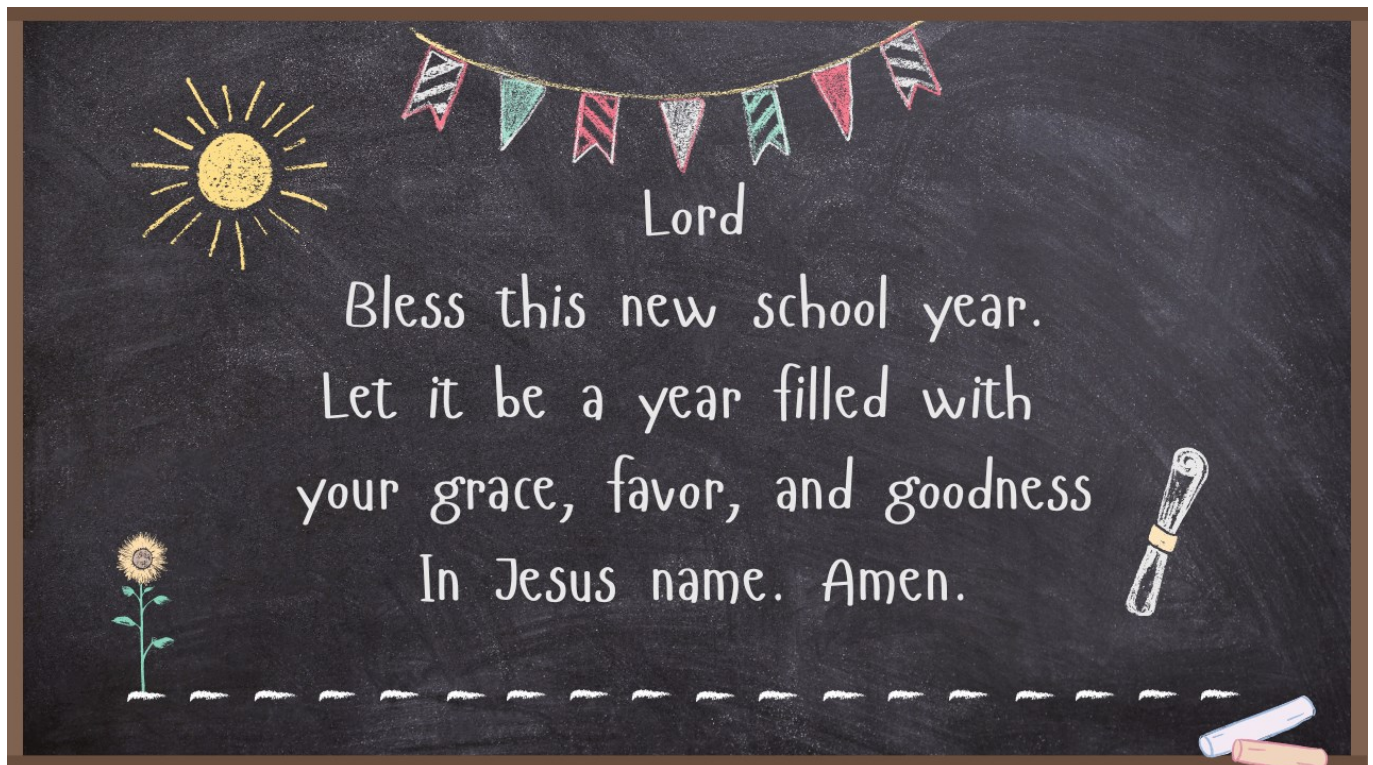 Lord
Bless this new school year.
Let it be a year filled with
your grace, favor, and goodness
In Jesus name. Amen.